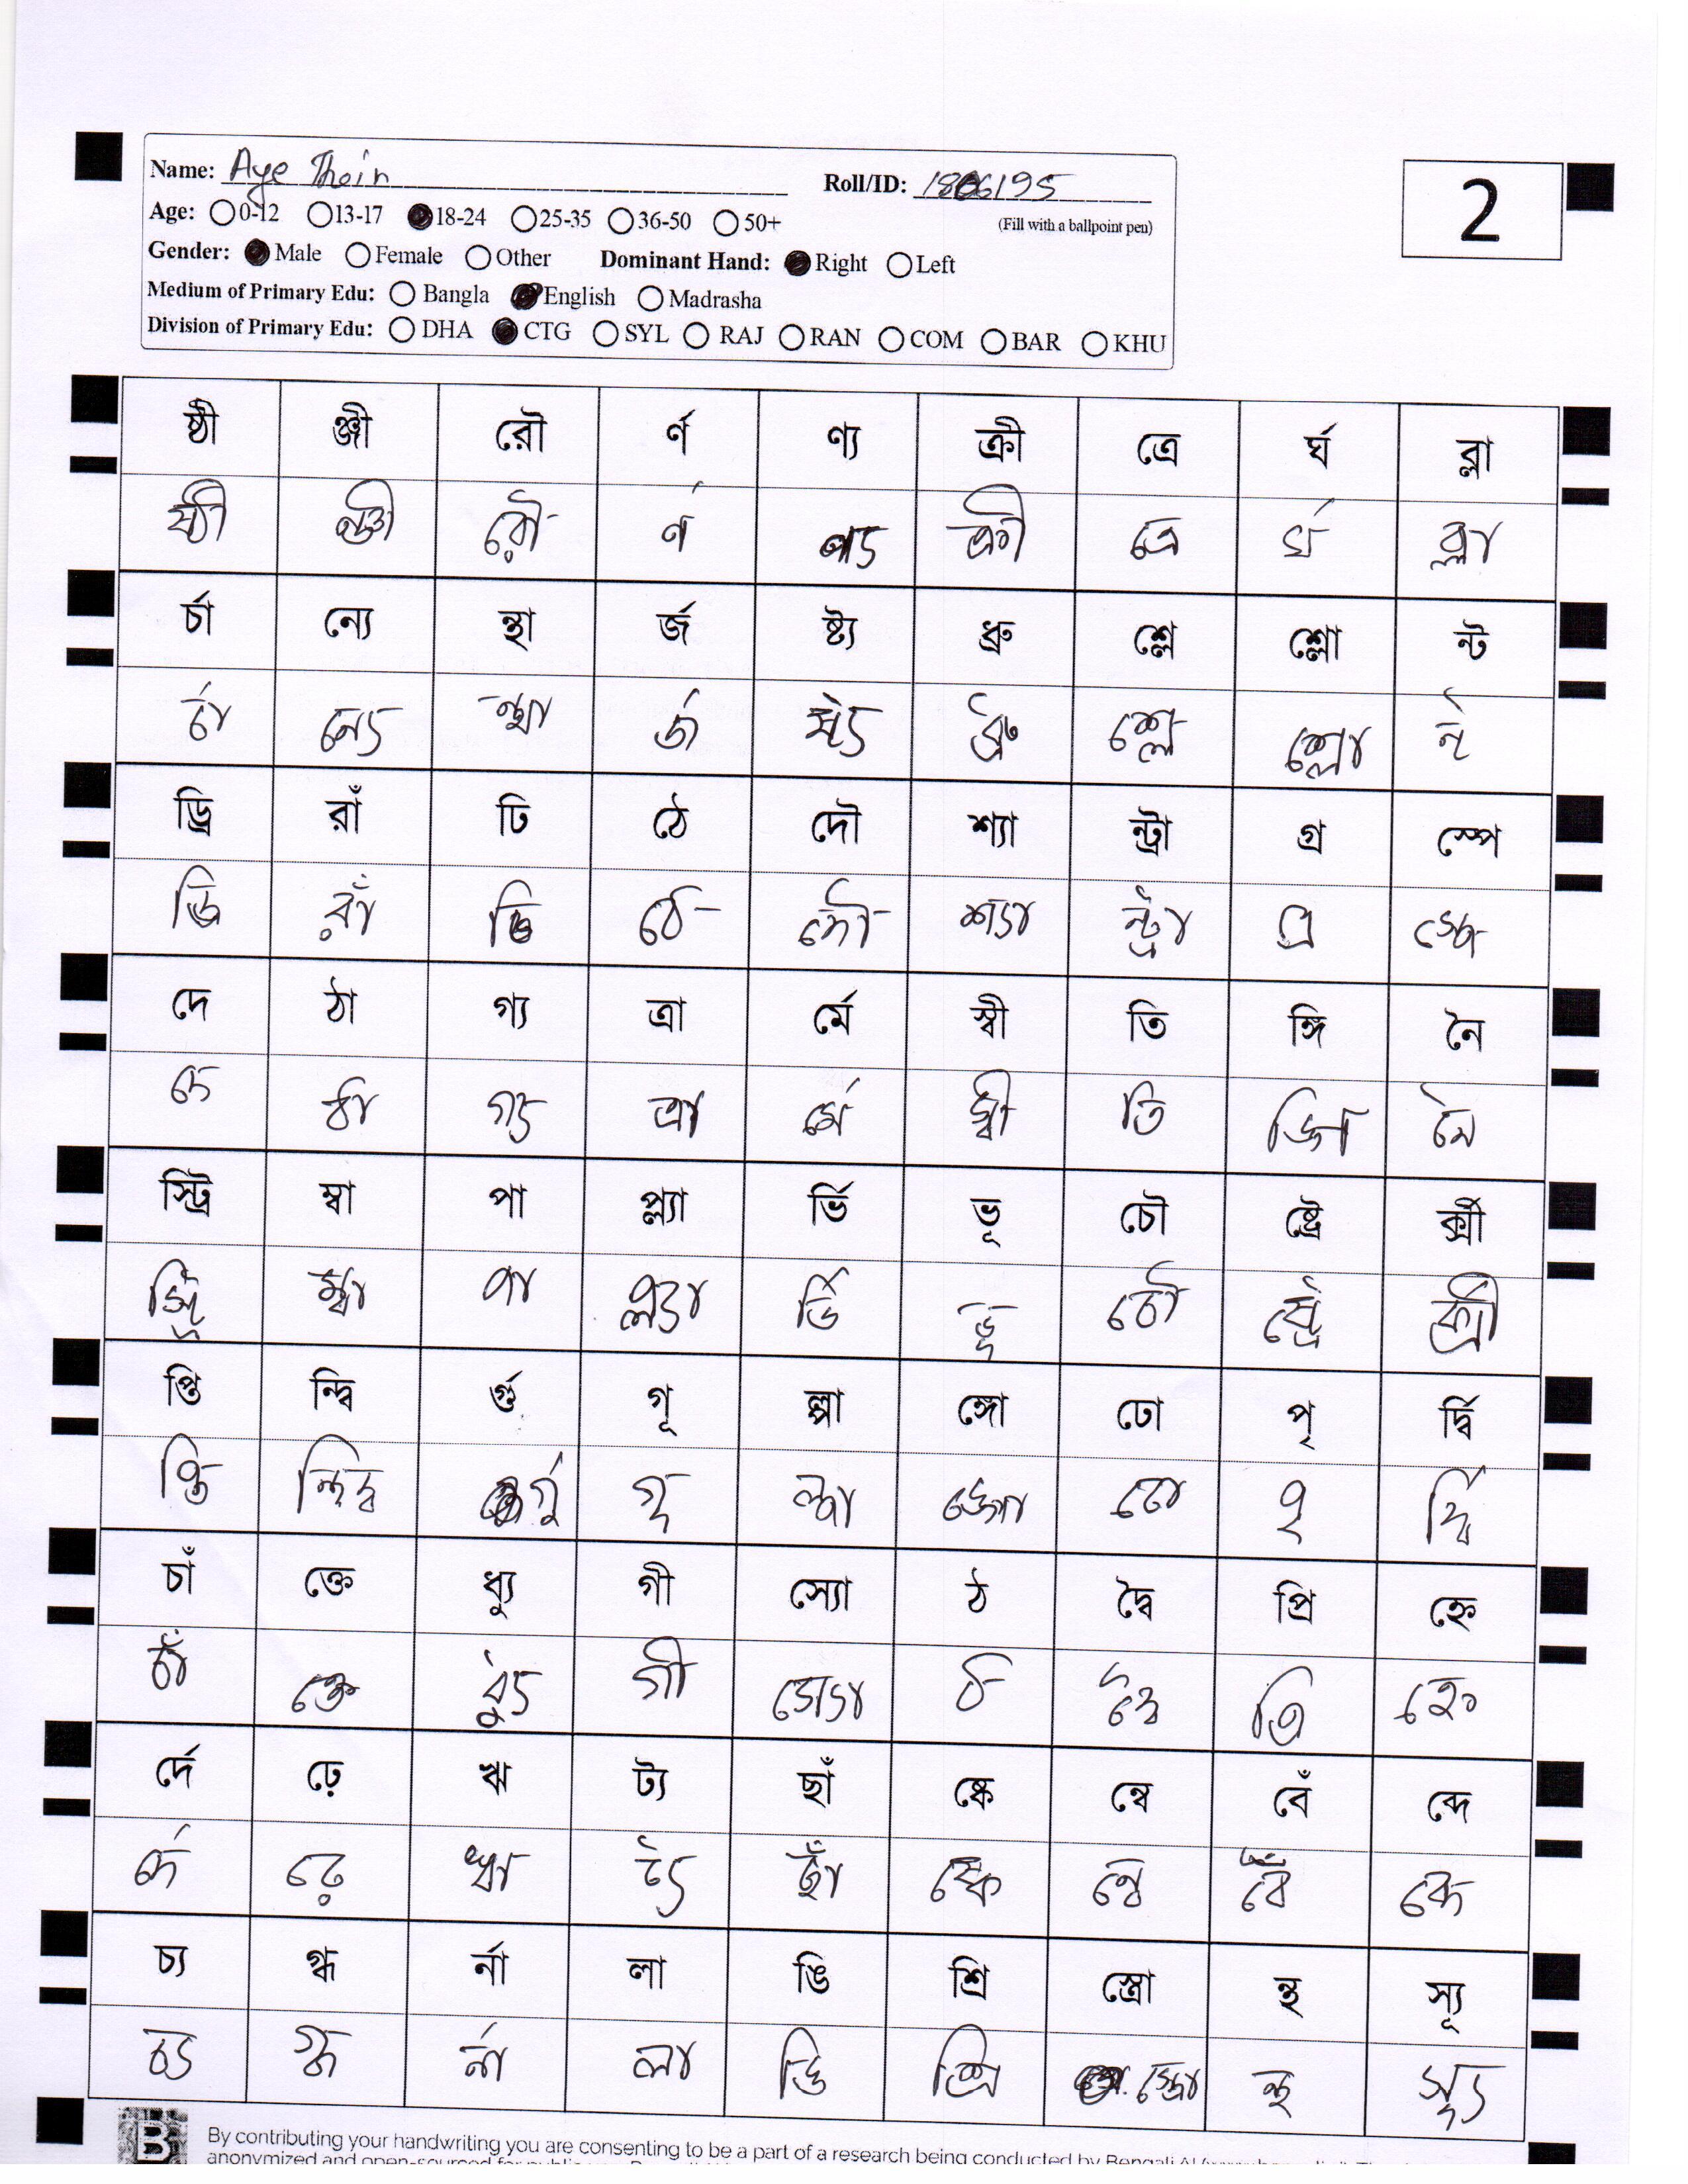 Name: Aye Thein Roll/ID: 1806195
2
Age: 0-12 13-17 18-24 25-35 36-50 50+ (Fill with a ballpoint pen)
Gender: Male Female Other Dominant Hand: Right Left
Medium of Primary Edu: Bangla English Madrasha
Division of Primary Edu: DHA CTG SYL RAJ RAN COM BAR KHU
ষ্ঠী ঞ্জী রৌ র্ণ ণ্য ক্রী ত্রে র্ঘ ব্লা
ষ্ঠী ঞ্জী রৌ র্ণ ণ্য ক্রী ত্রে র্ঘ ব্লা
র্চা ন্যে ন্থা র্জ ষ্ট্য ধ্রু শ্লে শ্লো ন্ট
র্চা ন্যে ন্থা র্জ ষ্ট্য ধ্রু শ্লে শ্লো ন্ট
ড্রি রাঁ ঢি ঠে দৌ শ্যা ন্ট্রা গ্র স্পে
ড্রি রাঁ ঢি ঠে দৌ শ্যা ন্ট্রা গ্র স্পে
দে ঠা গ্য ত্রা র্মে স্বী তি ঙ্গি নৈ
দে ঠা গ্য ত্রা র্মে স্বী তি ঙ্গি নৈ
স্ট্রি ম্বা পা প্ল্যা র্ভি ভূ চৌ ষ্ট্রে র্ক্সী
স্ট্রি ম্বা পা প্ল্যা র্ভি ভূ চৌ ষ্ট্রে
প্তি ন্দ্বি র্গু গূ ল্পা ঙ্গো ঢো পৃ র্দ্বি
প্তি ন্দ্বি র্গু গূ ল্পা ঙ্গো ঢো পৃ র্দ্বি
চাঁ ক্তে ধ্যু গী স্যো ঠ দ্বৈ প্রি হ্নে
চাঁ ক্তে ধ্যু গী স্যো ঠ দ্বৈ প্রি হ্নে
র্দে ঢ়ে ঋ ট্য ছাঁ ষ্কে ন্বে বেঁ ব্দে
র্দে ঢ়ে ঋ ট্য ছাঁ ষ্কে ন্বে বেঁ ব্দে
চ্য গ্ধ র্না লা ঙি শ্রি স্ত্রো ন্থ স্যূ
চ্য গ্ধ র্না লা ঙি শ্রি স্ত্রো ন্থ স্যূ
By contributing your handwriting you are consenting to be a part of a research being conducted by Bengali